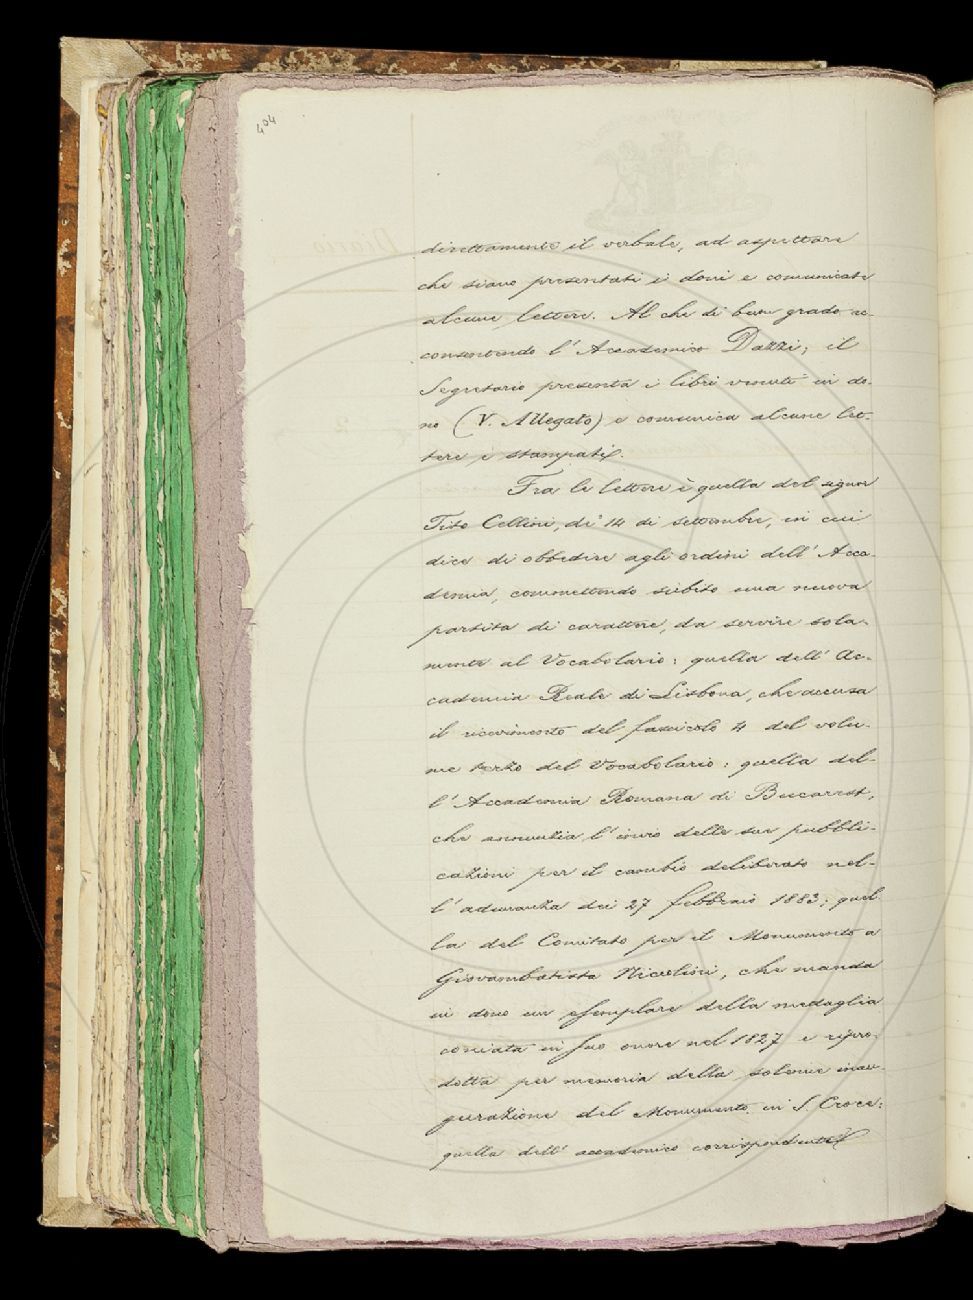 404
direttamente il verbale, ad aspettare
che siano presentati i doni e comunicate
alcune lettere. Al che di buon grado ac-
consentendo l'Accademico Dazzi, il
Segretario presenta i libri venuti in do-
no (V. Allegato) e comunica alcune let-
tere e stampati.
Fra le lettere è quella del signor
Tito Cellini, di' 14 di settembre, in cui
dice di obbedire agli ordini dell'Acca-
demia, commettendo subito una nuova
partita di carattere, da servire sola-
mente al Vocabolario: quella dell'Ac-
cademia Reale di Lisbona, che accusa
il ricevimento del fascicolo 4 del volu-
me terzo del Vocabolario: quella del-
l'Accademia Romana di Bucarest,
che annunzia l'invio delle sue pubbli-
cazioni per il cambio deliberato nel-
l'adunanza dei 27 febbraio 1883; quel-
la del Comitato per il Monumento a
Giovambatista Niccolini, che manda
in dono un esemplare della medaglia
coniata in suo onore nel 1827 e ripro-
dotta per memoria della solenne inau-
gurazione del Monumento in S. Croce:
quella dell'accademico corrispondente
Diario